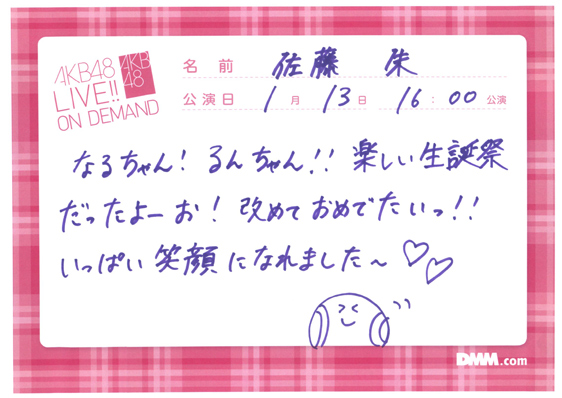 AKB48
LIVE!!
ON DEMAND
AKB
48
名前 佐藤 朱
公演日 1月 13日 16:00公演
なるちゃん! るんちゃん!! 楽しい生誕祭
だったよーお! 改めておめでたいっ!!
いっぱい笑顔になれました〜♡♡
DMM.com